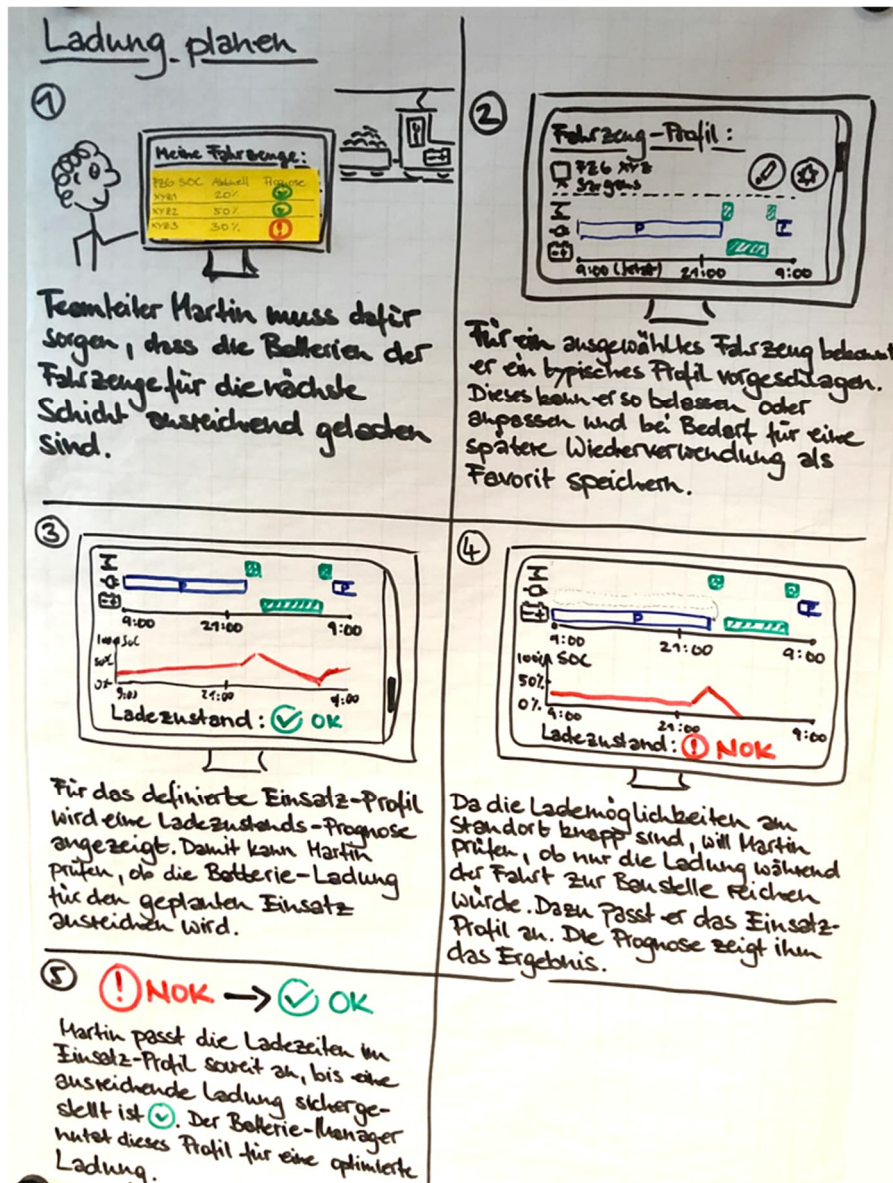 Ladung planen
1
Meine Fahrzeuge:
FZG SOC Aktuell Prognose
XYZ1 20%
XYZ2 50%
XYZ3 30% !
Teamleiter Martin muss dafür
sorgen, dass die Batterien der
Fahrzeuge für die nächste
Schicht ausreichend geladen
sind.
2
Fahrzeug-Profil:
FZG XYZ
Sargans
P
9:00 (Jetzt) 21:00 9:00
Für ein ausgewähltes Fahrzeug bekommt
er ein typisches Profil vorgeschlagen.
Dieses kann er so belassen oder
anpassen und bei Bedarf für eine
spätere Wiederverwendung als
Favorit speichern.
3
P P
9:00 21:00 9:00
100% SOC
50%
0%
9:00 21:00 9:00
Ladezustand: OK
Für das definierte Einsatz-Profil
wird eine Ladezustands-Prognose
angezeigt. Damit kann Martin
prüfen, ob die Batterie-Ladung
für den geplanten Einsatz
ausreichen wird.
4
P P
9:00 21:00 9:00
100% SOC
50%
0%
9:00 21:00 9:00
Ladezustand: ! NOK
Da die Lademöglichkeiten am
Standort knapp sind, will Martin
prüfen, ob nur die Ladung während
der Fahrt zur Baustelle reichen
würde. Dazu passt er das Einsatz-
Profil an. Die Prognose zeigt ihm
das Ergebnis.
5
! NOK → OK
Martin passt die Ladezeiten im
Einsatz-Profil soweit an, bis eine
ausreichende Ladung sicherge-
stellt ist. Der Batterie-Manager
nutzt dieses Profil für eine optimierte
Ladung.